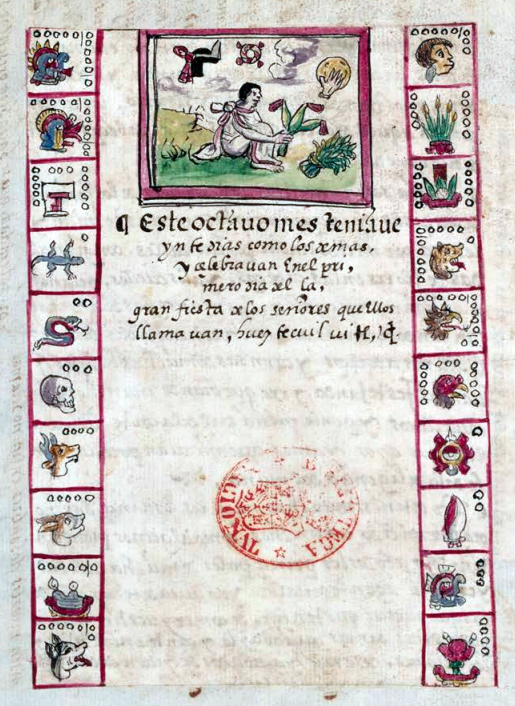 ¶ Este octavo mes teniave
ynte dias como los demas,
y celebravan Enel pri,
mero dia del la,
gran fiesta delos señores que Ellos
llama van, huey tecuil vitl,